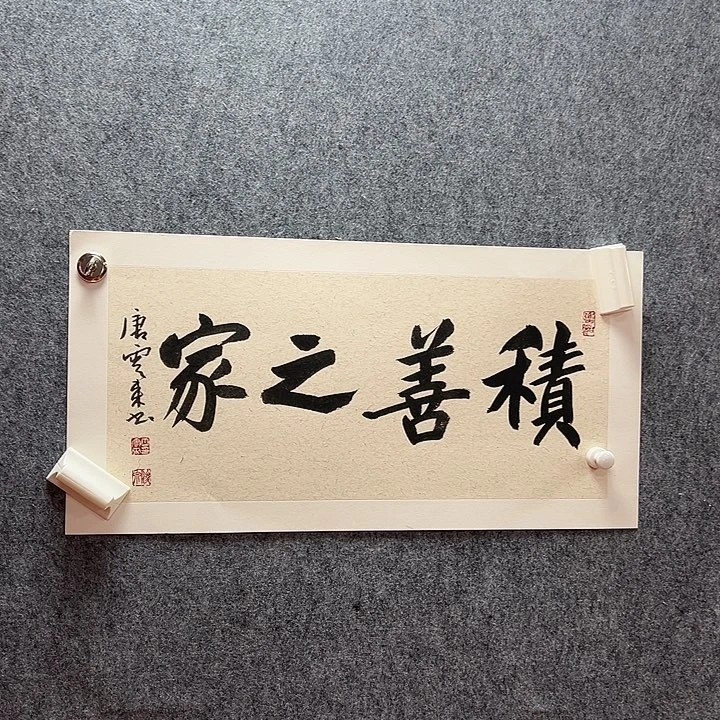 積善之家
唐雲來书